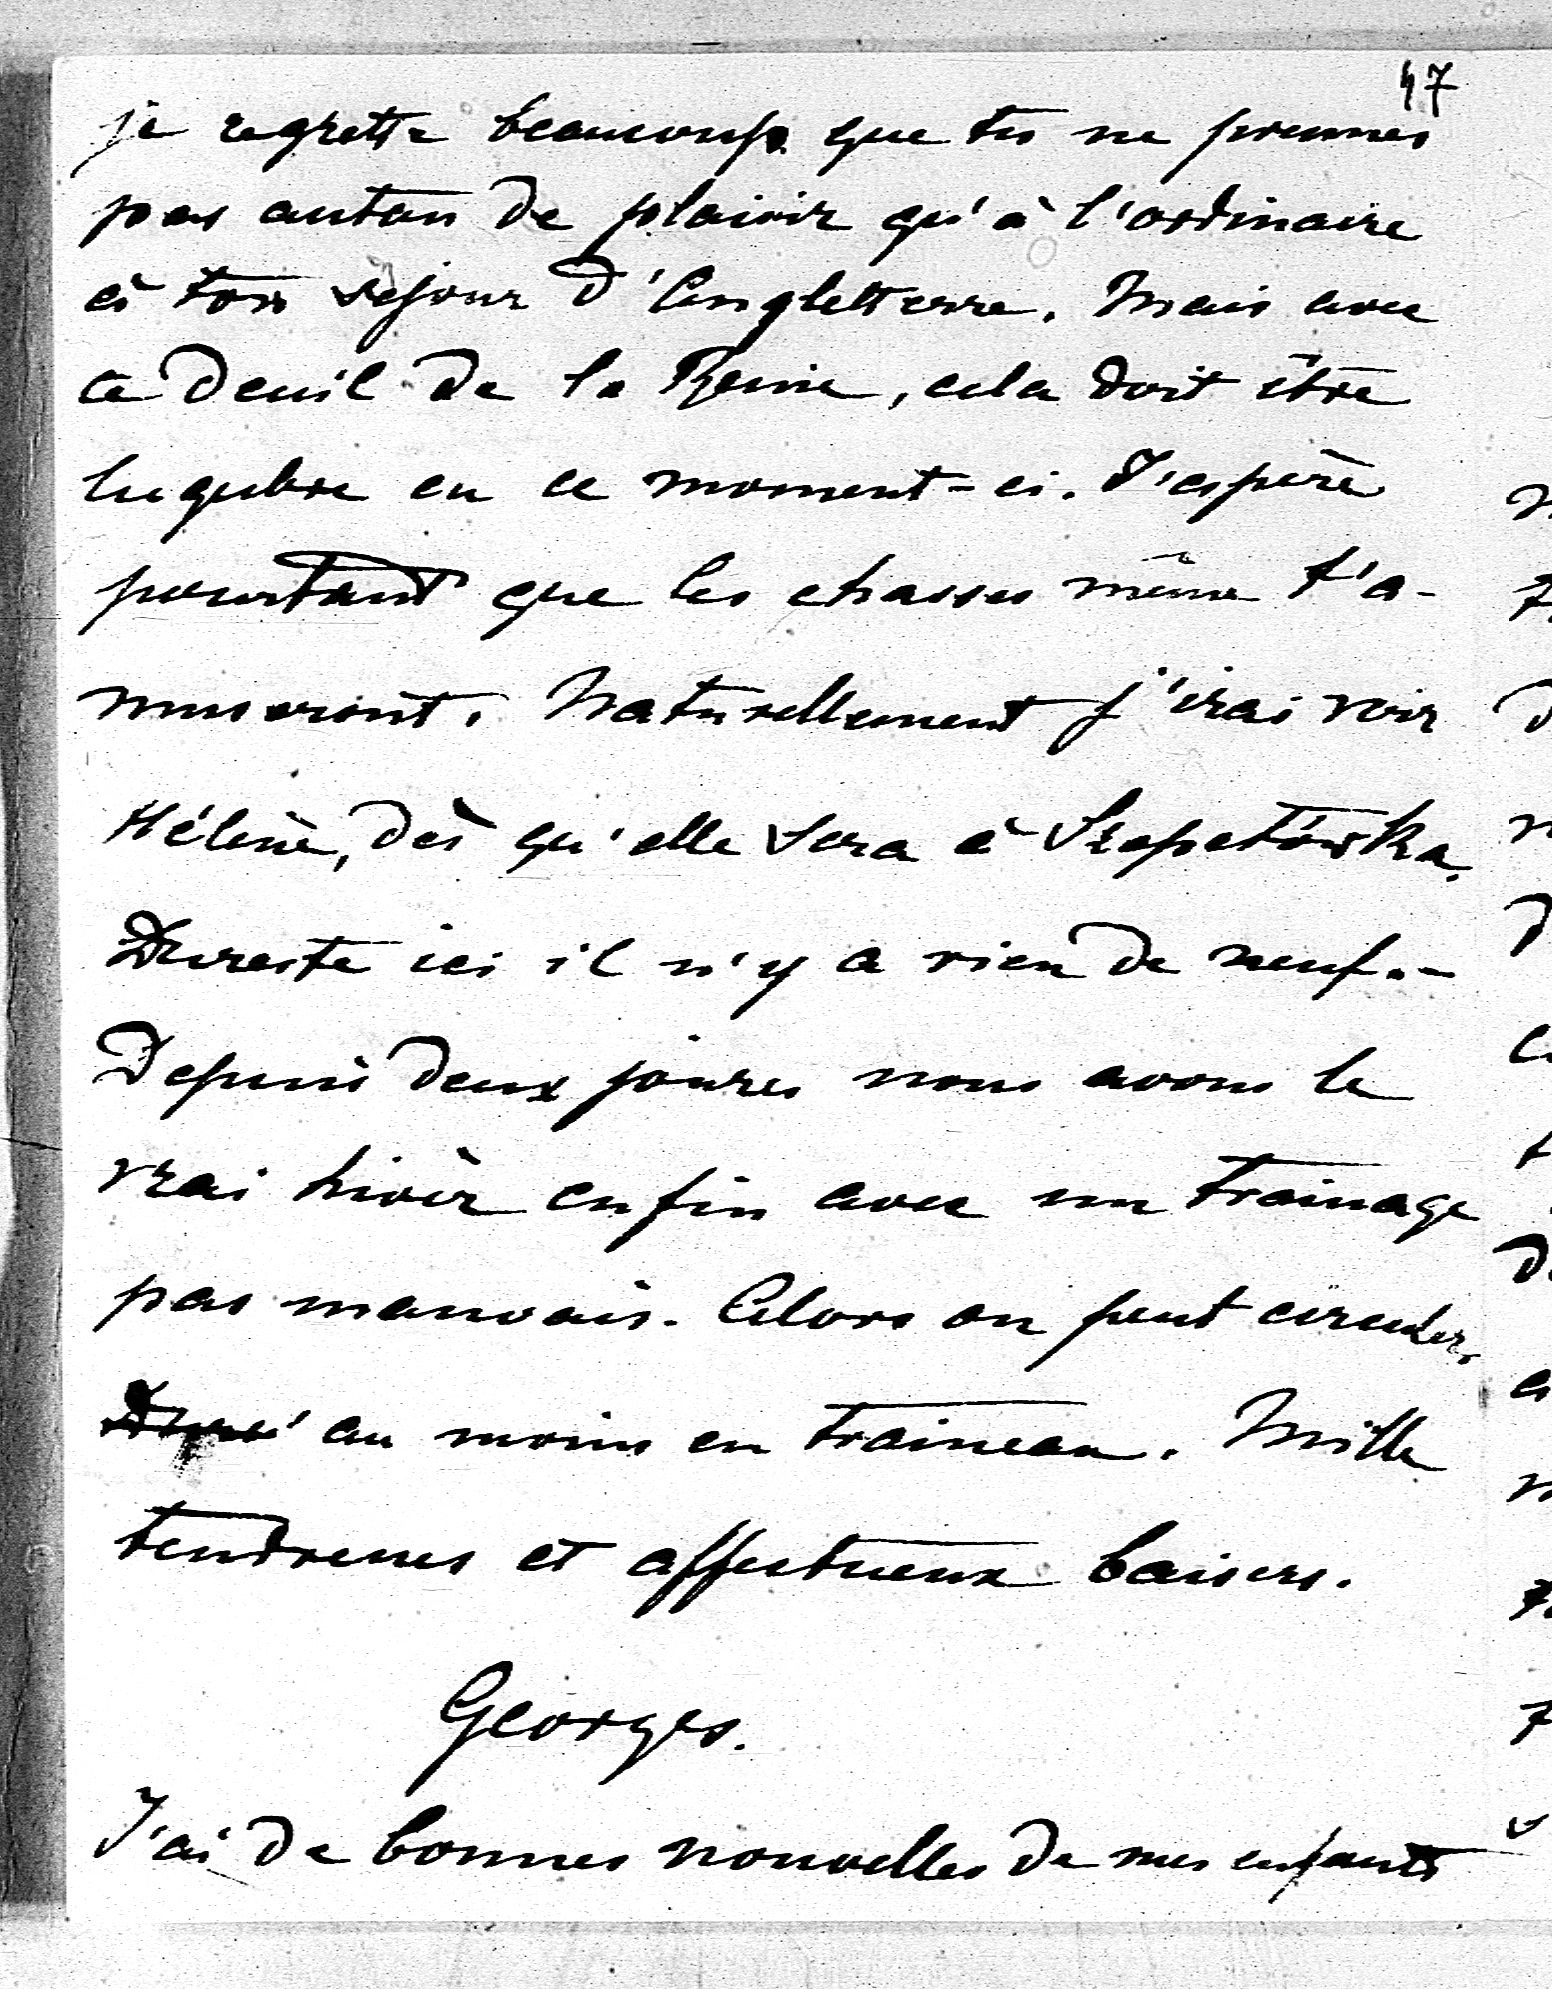 47
je regrette beaucoup que tu ne prennes
pas autan de plaisir qu'à l'ordinaire
à ton sejour d'Angletterre. Mais avec
ce deuil de la Reine, cela doit être
lugubre en ce moment-ci. J'espère
pourtant que les chasses même t'a-
museront. Naturellement j'irai voir
Hélène, dès qu'elle sera à Szepetówka.
Dureste ici il n'y a rien de neuf.-
Depuis deux joures nous avons le
vrai hivèr enfin avec un trainage
pas mauvais. Alors on peut circuler,
au moins en traineau. Mille
tendresses et affectueux baisers.
Georges.
J'ai de bonnes nouvelles de mes enfants